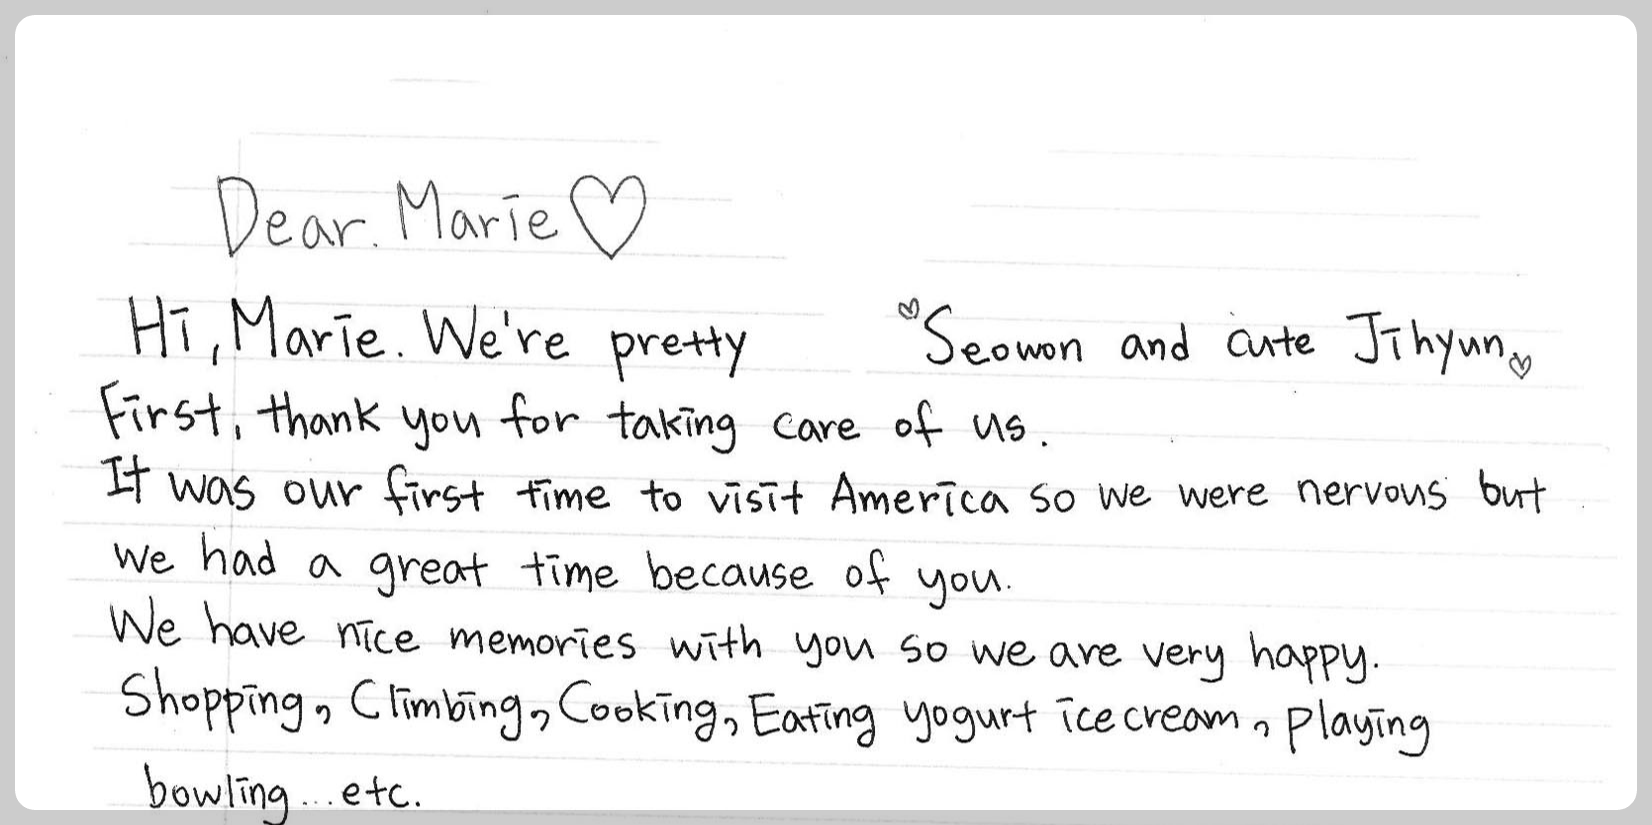 Dear. Marie♡
Hi, Marie. We're pretty ♡Seowon and cute Jihyun♡
First, thank you for taking care of us.
It was our first time to visit America so we were nervous but
we had a great time because of you.
We have nice memories with you so we are very happy.
Shopping, Climbing, Cooking, Eating yogurt icecream, playing
bowling...etc.